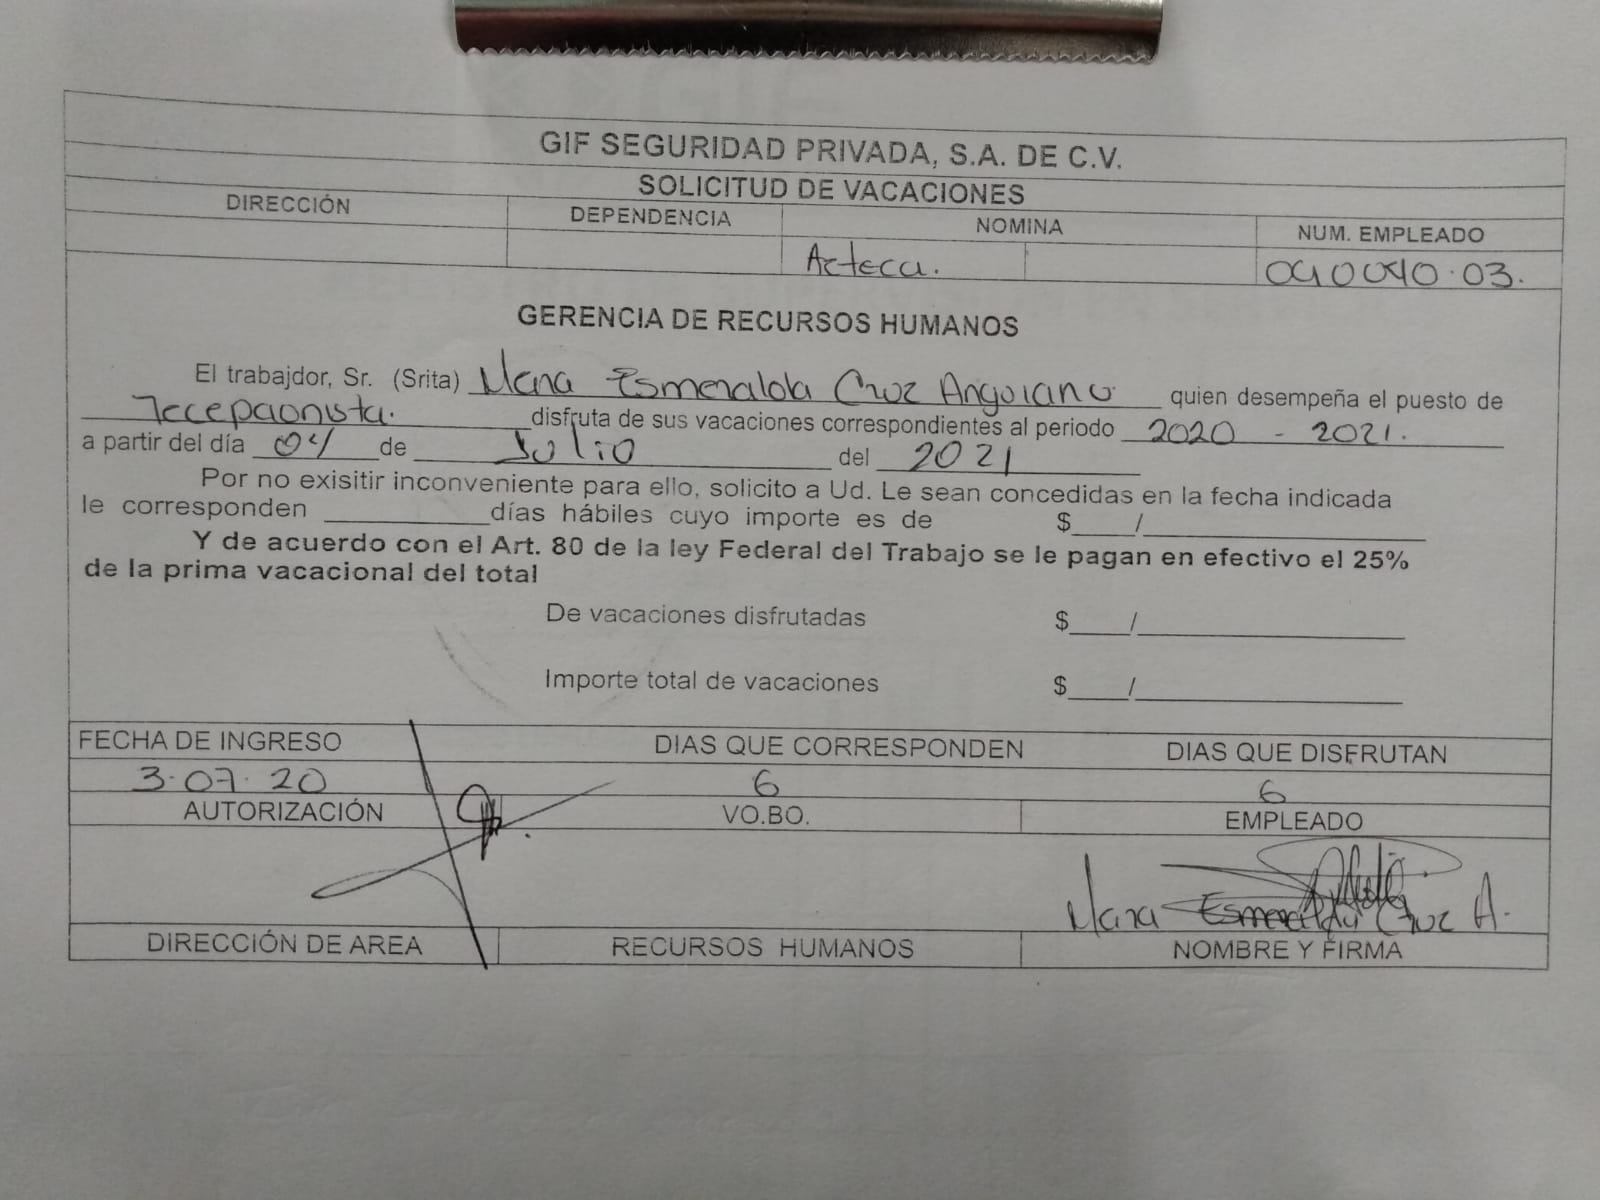 GIF SEGURIDAD PRIVADA, S.A. DE C.V.
SOLICITUD DE VACACIONES
DIRECCIÓN DEPENDENCIA NOMINA NUM. EMPLEADO
Azteca. 090090.03.
GERENCIA DE RECURSOS HUMANOS
El trabajdor, Sr. (Srita) Maria Esmeralda Cruz Anguiano quien desempeña el puesto de
recepcionista. disfruta de sus vacaciones correspondientes al periodo 2020 - 2021.
a partir del día 04 de Julio del 2021
Por no exisitir inconveniente para ello, solicito a Ud. Le sean concedidas en la fecha indicada
le corresponden __________ días hábiles cuyo importe es de $____/____
Y de acuerdo con el Art. 80 de la ley Federal del Trabajo se le pagan en efectivo el 25%
de la prima vacacional del total
De vacaciones disfrutadas $____/____
Importe total de vacaciones $____/____
FECHA DE INGRESO DIAS QUE CORRESPONDEN DIAS QUE DISFRUTAN
3.07.20 6 6
AUTORIZACIÓN VO.BO. EMPLEADO
Maria Esmeralda Cruz A.
DIRECCIÓN DE AREA RECURSOS HUMANOS NOMBRE Y FIRMA